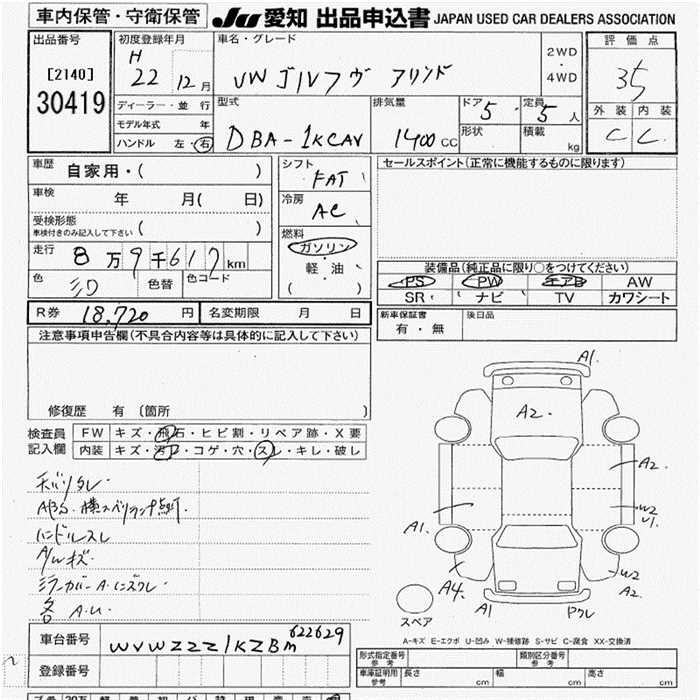 車内保管・守衛保管 JU 愛知 出品申込書 JAPAN USED CAR DEALERS ASSOCIATION
出品番号 初度登録年月 車名・グレード 評価点
[2140] H 22 12月 VW ゴルフヴァリアント 2WD・4WD 35
30419 ディーラー・並行 型式 排気量 ドア 5 定員 5人 外装 内装
モデル年式 年 DBA-1KCAV 1400cc 形状 積載 kg C C
ハンドル 左・右
車歴 自家用・( ) シフト FAT セールスポイント(正常に機能するものに限ります)
車検 年 月( 日) 冷房 AC
受検形態 ( )
車検付きのみ記入して下さい
燃料 ガソリン・軽油・( )
走行 8万9千617km
色 シロ 色替 色コード
装備品(純正品に限り○をつけてください)
PS PW エアB AW
SR ナビ TV カワシート
R券 18,720円 名変期限 月 日
新車保証書 有・無 後日品
注意事項申告欄(不具合内容等は具体的に記入して下さい)
修復歴 有 〔箇所 〕
検査員記入欄 FW キズ・飛石・ヒビ割・リペア跡・X要
内装 キズ・汚れ・コゲ・穴・スレ・キレ・破レ
天バリタレ
ABS・横スベリランプ点灯
ハンドルスレ
A/Wキズ
ミラーカバーA・ニズクレ
各 A.U
A1
A2
A2
W2
U1
A1
A4
X
W2
A2
A1
ワクレ
スペア
A-キズ E-エクボ U-凹み W-補修跡 S-サビ C-腐食 XX-交換済
車台番号 WVWZZZ1KZBM622629
登録番号
形式指定番号 参考 類別区分番号 参考
車庫証明用 参考 長さ cm 幅 cm 高さ cm